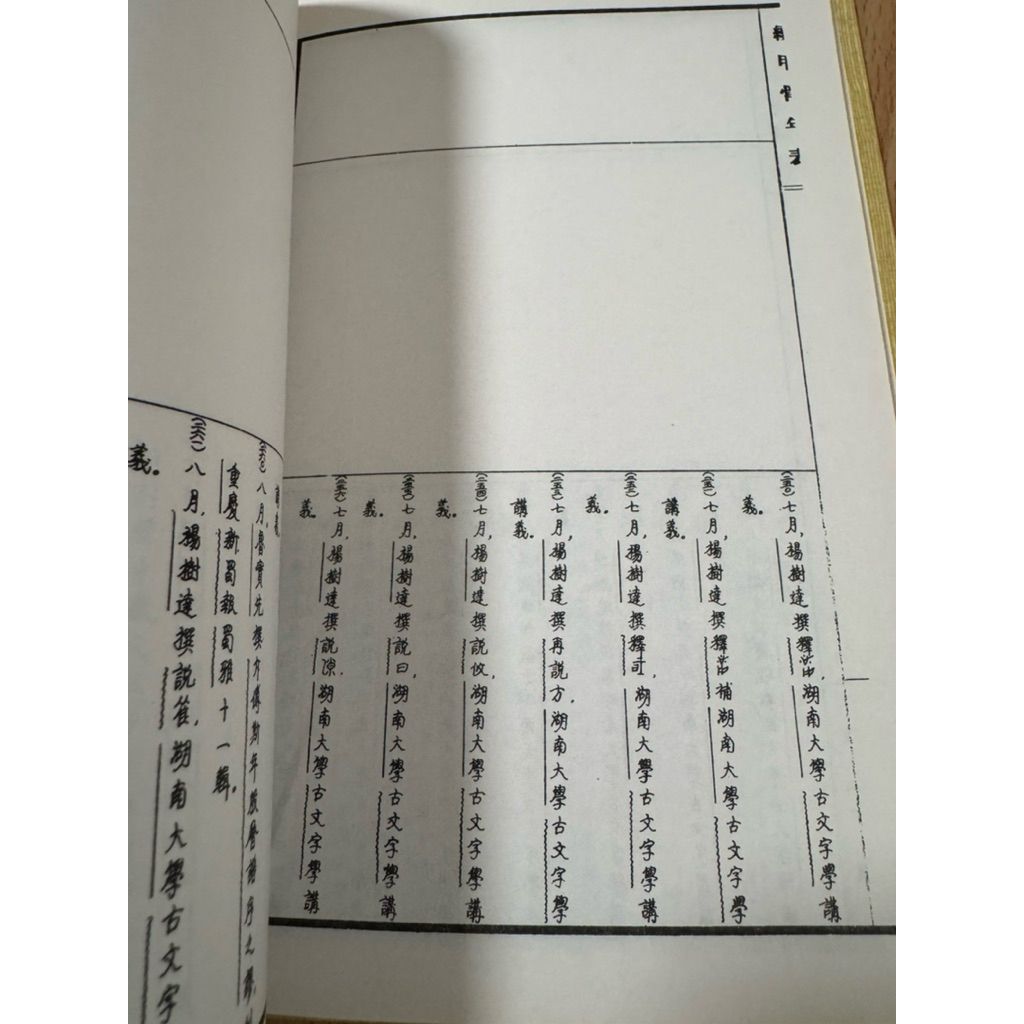 (二五〇)七月,楊樹達撰釋𡴎,湖南大學古文字學講
義。
(二五一)七月,楊樹達撰釋𡴎補湖南大學古文字學
講義。
(二五二)七月,楊樹達撰釋司,湖南大學古文字學講
義。
(二五三)七月,楊樹達撰再説方,湖南大學古文字學
講義。
(二五四)七月,楊樹達撰説攸,湖南大學古文字學講
義。
(二五五)七月,楊樹達撰説曰,湖南大學古文字學講
義。
(二五六)七月,楊樹達撰説隙,湖南大學古文字學講
義。
講義。
八月,魯實先撰方傅斯年殷曆譜序之謬,
重慶新蜀報蜀雅十一輯。
八月,楊樹達撰説雈,湖南大學古文字
義。